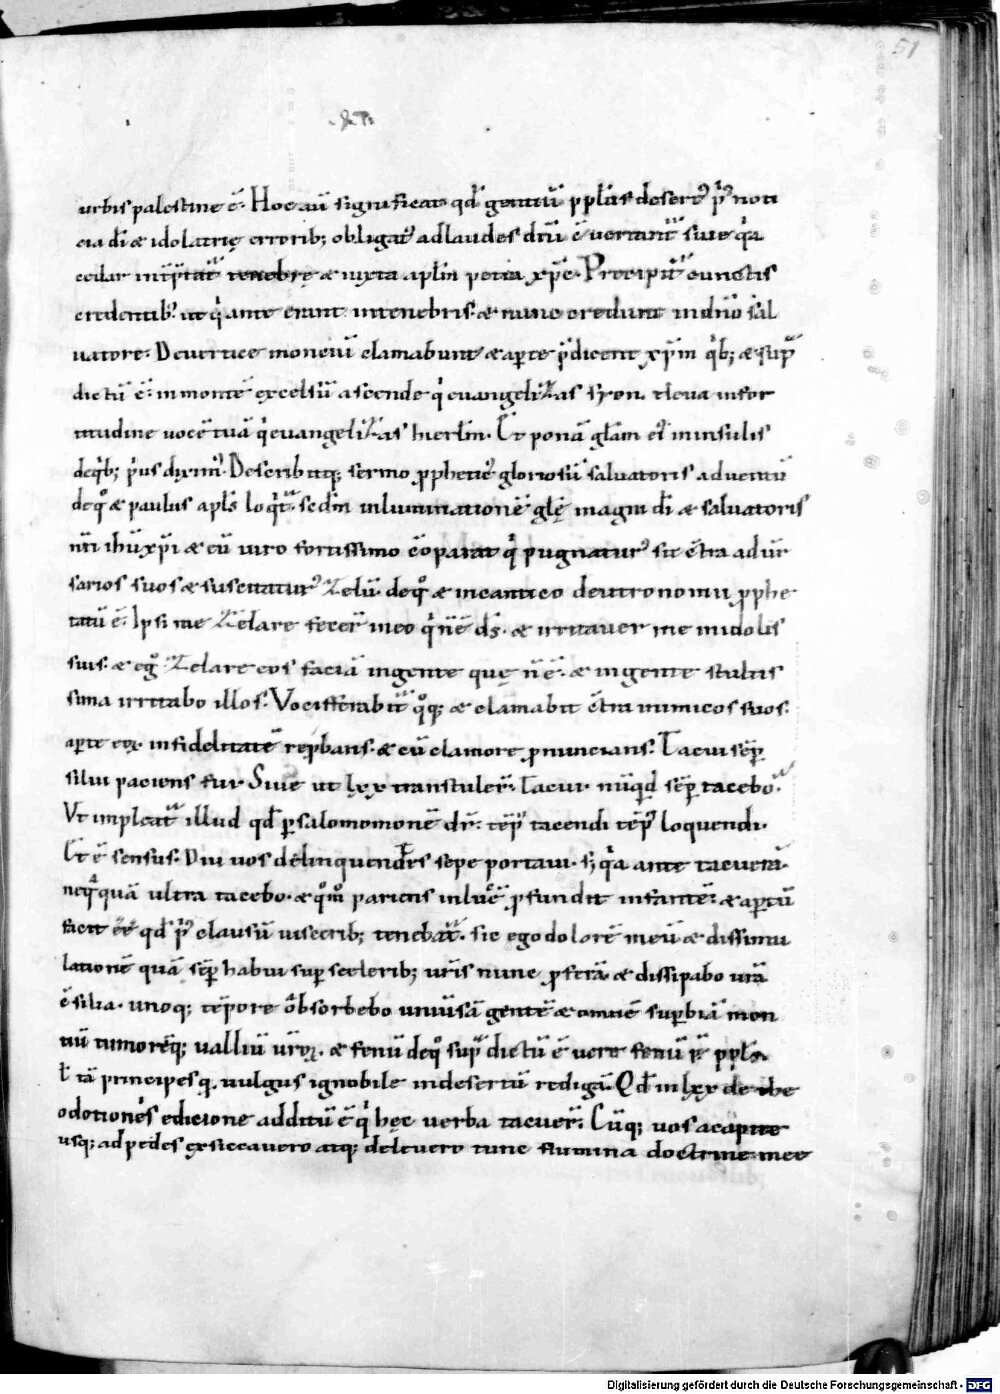 51
urbis palestine ē. Hoc aū significat qđ gentiū pplus desert᷒ p̄ noti
cia di & idolatrię errorib; obligat᷒ ad laudes dni cuertant᷒ siue q̓a
cedar int̄p̄tat᷒ tenebrę & iuxta aplm petra xp̄c. Precipit᷒ cunctis
credentib᷒. ut q̓ ante erant in tenebris. & nunc credunt in dn̄o sal
uatore. De uertice montiū clamabunt & ap̱te p̄dicent xp̄m q̓b; & sup᷒
dictū ē. in monte excelsū ascende q̓ euangelizas syon. eleua in for
titudine uocē tuā q̓ euangelizas hierłm. Et ponā głam ei᷒ in insulis
deq̓b; p̓us dixim᷒. Describitq; sermo ꝓphetic᷒ gloriosū saluatoris aduentū
deq̊ & paulus apłs loq̓t᷒. scđm inluminationē głę magni di & saluatoris
nr̄i ihū xp̄i & cū uiro fortissimo cōparat q̓ pugnatur᷒ sit ct̄ra aduer
sarios suos & suscitatur᷒ zelū. deq̊ & in cantico deutronomii ꝓphe
tatū ē. Ipsi me zelare fecer̄ in eo q̓ ñ ē ds̄. & irritauer̄ me in idolis
suis. & eg̊ zelare eos faciā in gente quę ñ ē. & in gente stultis
sima irritabo illos. Vociferabit᷒ q̊q; & clamabit ct̄ra inimicos suos.
ap̱te eoꝝ infidelitatē rep̱bans. & cū clamore ꝓnuncians. Tacui sēp̱
silui paciens fui. Siue ut lxx transtuler̄. Tacui. nūq̓d sēp̱ tacebo.
Vt impleat᷒ illud qđ p̱ salomonē dr̄. tēp᷒ tacendi tēp᷒ loquendi.
Et ē sensus. Diu uos delinquentes sepe portaui. s; q̓a ante tacuerā.
neq̓quā ultra tacebo. & q̊m̊ pariens in lucē ꝓfundit infantē. & ap̱tū
facit ēē qđ p̓us clausū uiscerib; tenebat᷒. sic ego dolorē meū & dissimu
lationē quā sēp̱ habui sup̱ sceleribꝫ ur̄is nunc ꝓferā. & dissipabo ur̄a
csilia. unoq; tēpore obsorbebo uniūsā gentē & omnē sup̱biā mon
tiū tumorēq; ualliū ur̄oꝝ. & fenū deq̊ sup᷒ dictū ē uere fenū ē ppłs.
ł tā principes q. uulgus ignobile in desertū redigā. Qđ in lxx de the
odotionis edicione additū ē q̓ hęc uerba tacuer̄. Cūq; uos a capite
usq; ad pedes exsiccauero atq; deleuero tunc flumina doctrinę meę
Digitalisierung gefördert durch die Deutsche Forschungsgemeinschaft - DFG